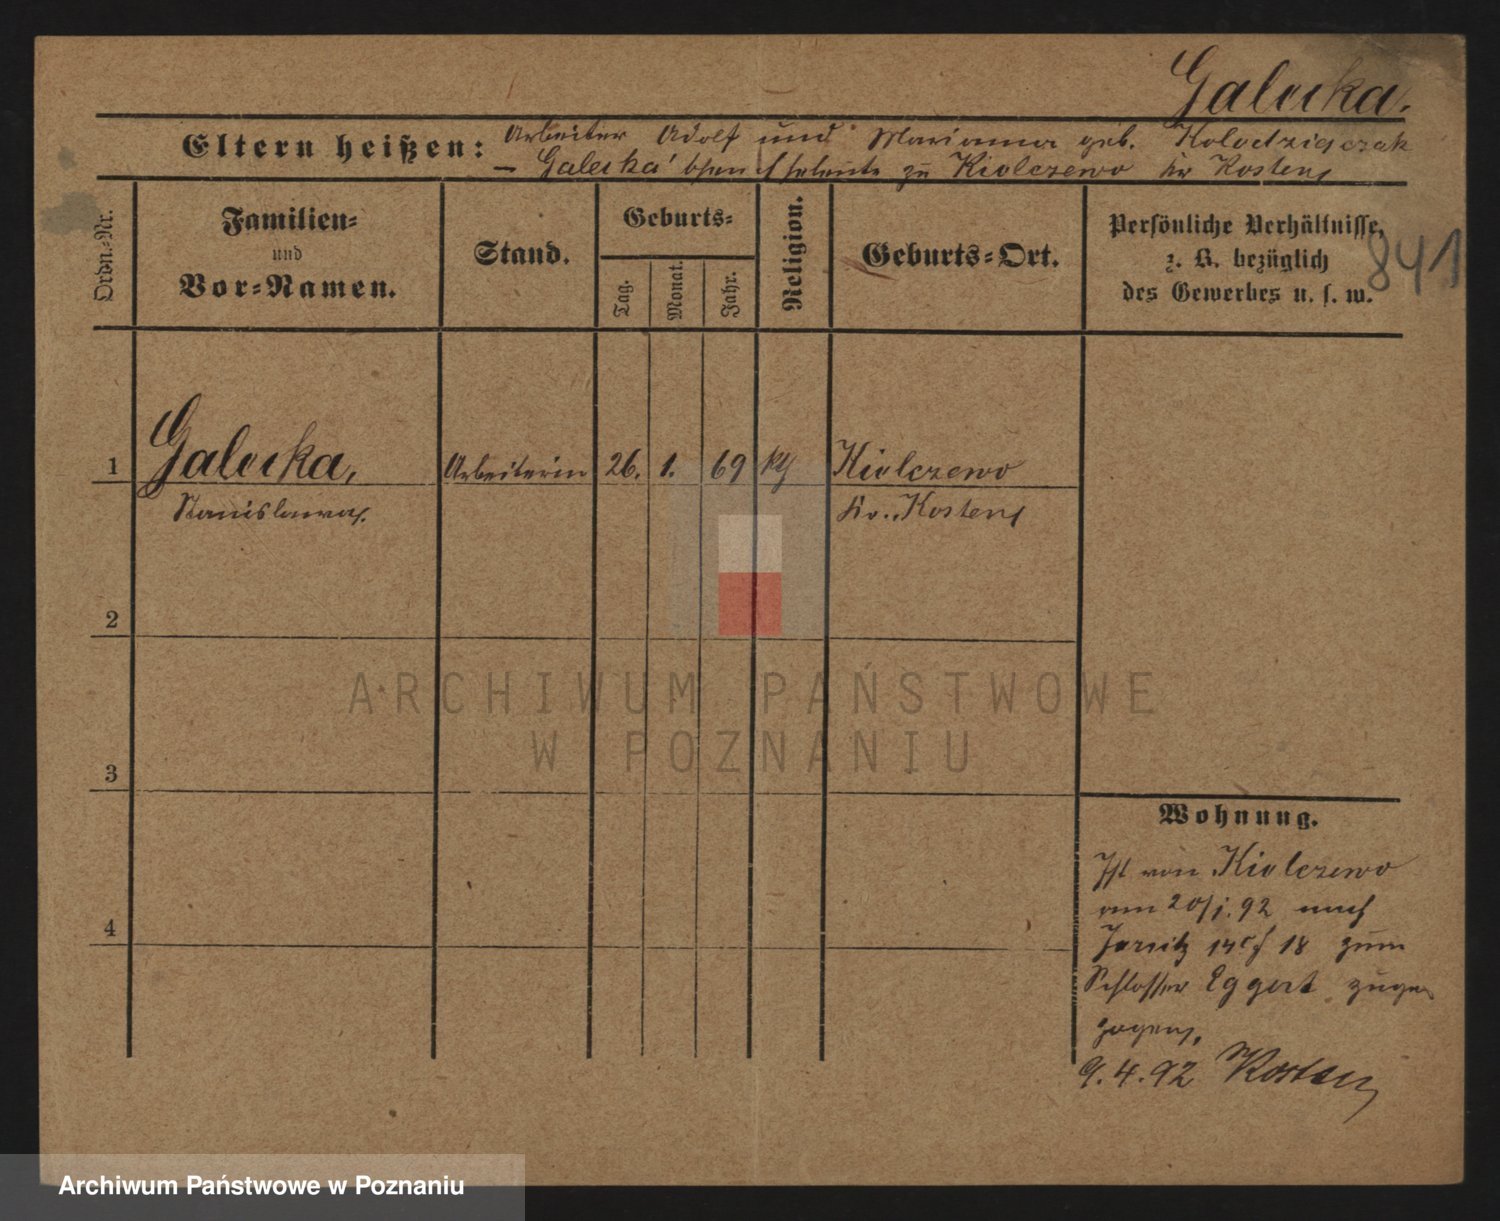 Galecka.
Eltern heißen: Arbeiter Adolf und Marianna geb. Kolodziejczak
— Galecka'schen Eheleute zu Kielczewo Kr Kosten
841
Ordn.-Nr.
Familien-
und
Vor-Namen.
Stand.
Geburts-
Tag.
Monat.
Jahr.
Religion.
Geburts-Ort.
Persönliche Verhältnisse,
z. B. bezüglich
des Gewerbes u. s. w.
1 Galecka, Arbeiterin 26. 1. 69 Kielczewo
Stanislawa. Kr. Kosten
2
3
4
Wohnung.
Ist von Kielczewo
am 20/1. 92 nach
Jersitz 18 zum
Schlosser Eggert zuge-
zogen.
9.4.92 Kosten
ARCHIWUM PAŃSTWOWE
W POZNANIU
Archiwum Państwowe w Poznaniu